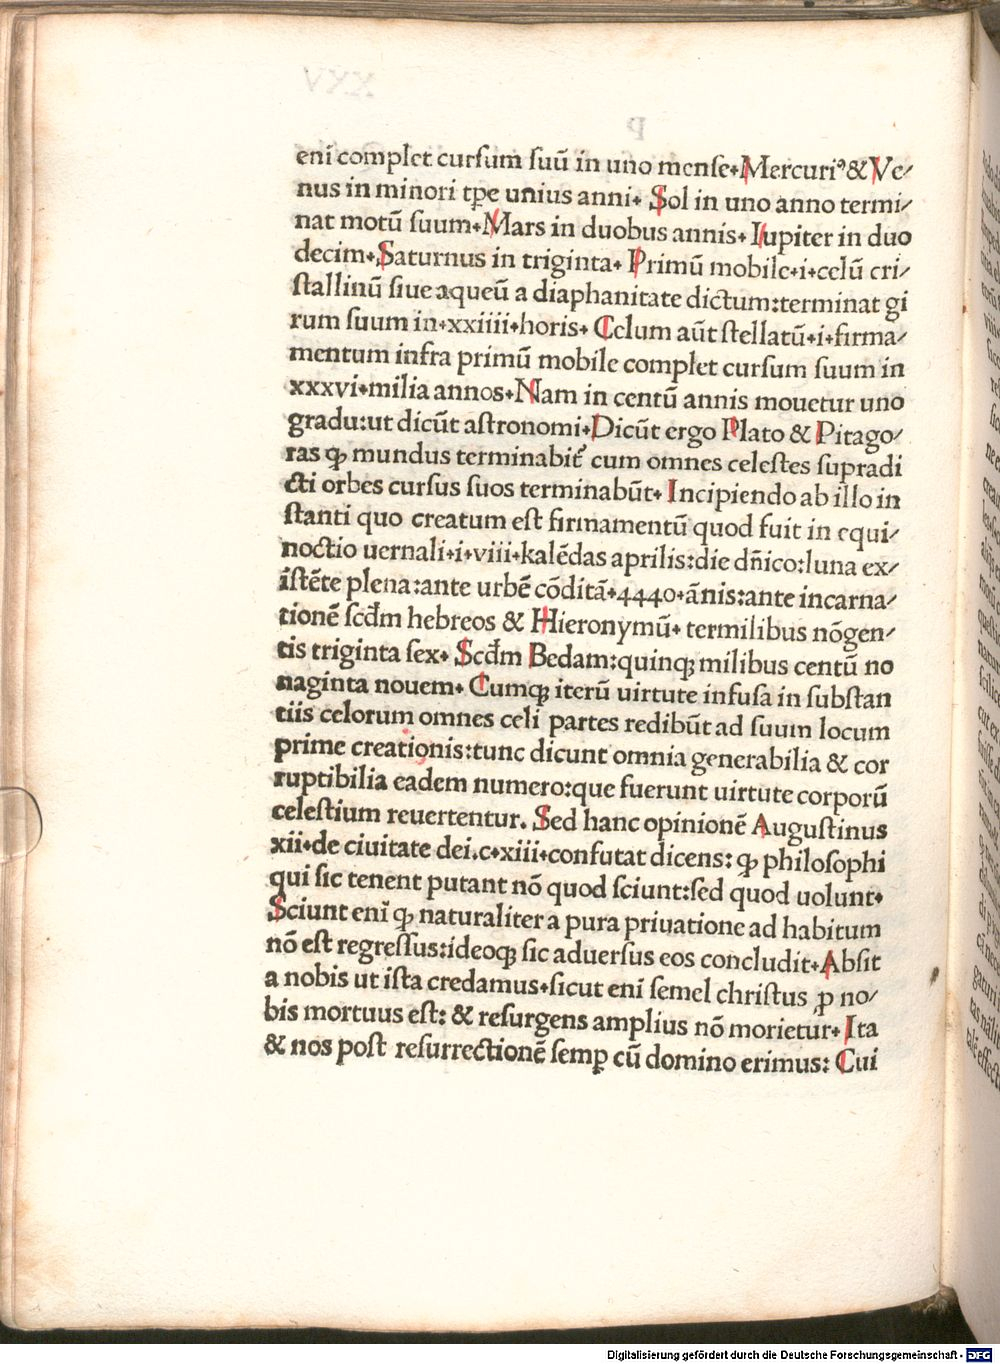 enī complet curſum ſuū in uno menſe. Mercuriꝰ & Ve/
nus in minori tꝑe unius anni. Sol in uno anno termi/
nat motū ſuum. Mars in duobus annis. Iupiter in duo
decim. Saturnus in triginta. Primū mobile.i.celū cri/
ſtallinū ſiue aqueū a diaphanitate dictum:terminat gi
rum ſuum in.xxiiii.horis. Celum aūt ſtellatū.i.firma/
mentum infra primū mobile complet curſum ſuum in
xxxvi.milia annos. Nam in centū annis mouetur uno
gradu:ut dicūt aſtronomi. Dicūt ergo Plato & Pitago/
ras ꝙ mundus terminabit᷑ cum omnes celeſtes ſupradi
cti orbes curſus ſuos terminabūt. Incipiendo ab illo in
ſtanti quo creatum eſt firmamentū quod fuit in equi/
noctio uernali.i.viii.kalēdas aprilis:die dn̄ico:luna ex/
iſtēte plena:ante urbē cōditā.4440.ānis:ante incarna/
tionē ſcd̄m hebreos & Hieronymū. termilibus nōgen/
tis triginta ſex. Scd̄m Bedam:quinqꝫ milibus centū no
naginta nouem. Cumqꝫ iterū uirtute infuſa in ſubſtan
tiis celorum omnes celi partes redibūt ad ſuum locum
prime creationis:tunc dicunt omnia generabilia & cor
ruptibilia eadem numero:que fuerunt uirtute corporū
celeſtium reuertentur. Sed hanc opinionē Auguſtinus
xii.de ciuitate dei.c.xiii.confutat dicens: ꝙ philoſophi
qui ſic tenent putant nō quod ſciunt:ſed quod uolunt.
Sciunt enī ꝙ naturaliter a pura priuatione ad habitum
nō eſt regreſſus:ideoqꝫ ſic aduerſus eos concludit. Abſit
a nobis ut iſta credamus.ſicut enī ſemel chriſtus ꝓ no/
bis mortuus eſt: & reſurgens amplius nō morietur. Ita
& nos poſt reſurrectionē ſemꝑ cū domino erimus: Cui
Digitalisierung gefördert durch die Deutsche Forschungsgemeinschaft - DFG